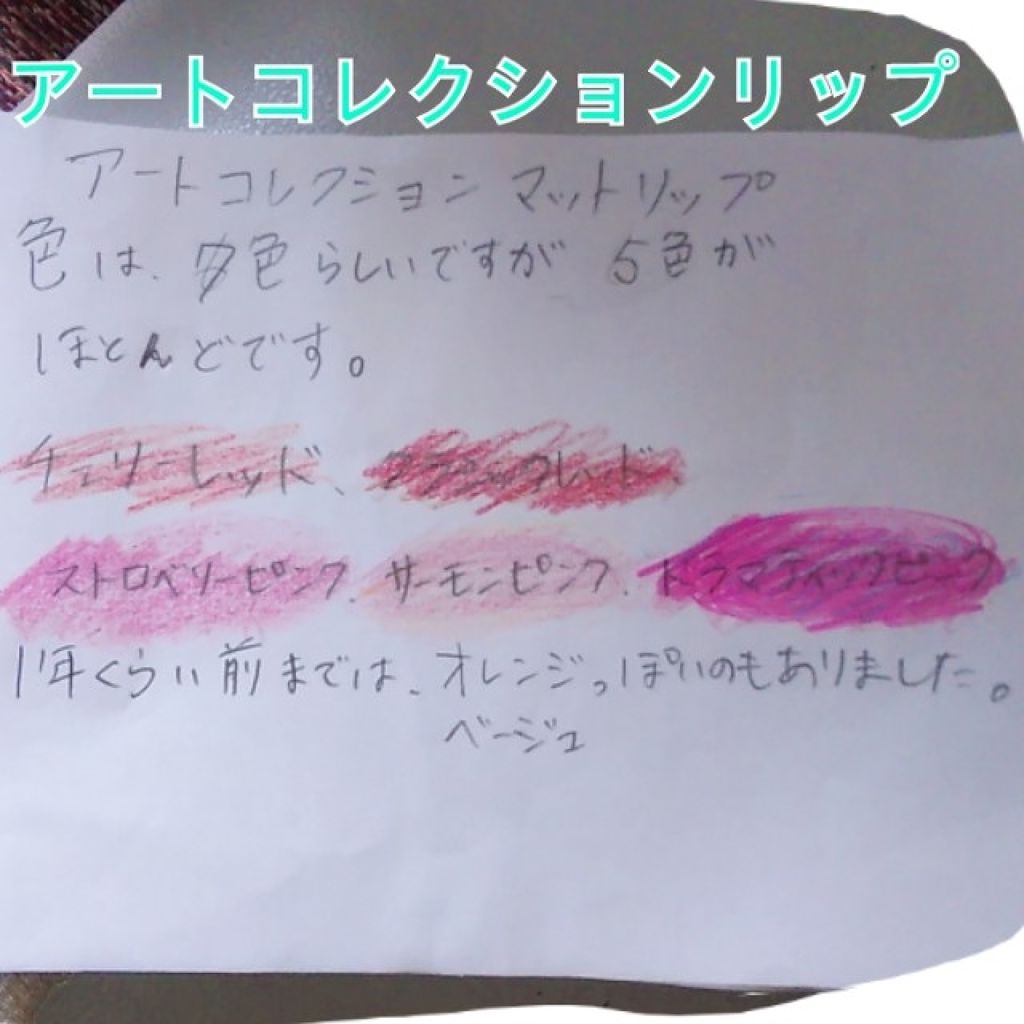 アートコレクションリップ
アートコレクション マットリップ
色は、 色らしいですが 5色が
ほとんどです。
チェリーレッド、クラシックレッド、
ストロベリーピンク、サーモンピンク、ドラマティックピンク
1年くらい前までは、オレンジっぽいのもありました。
ベージュ